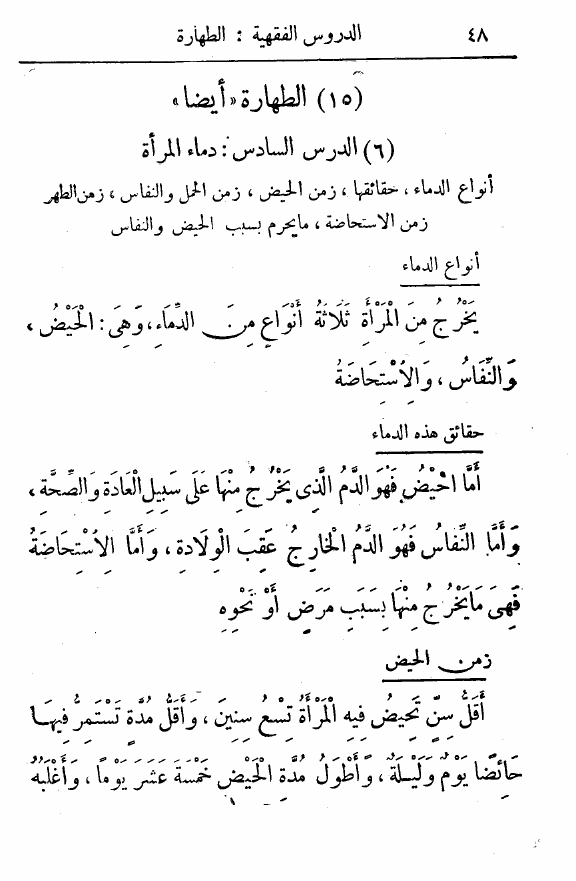 ٤٨ الدروس الفقهية : الطهارة
(١٥) الطهارة «أيضا»
(٦) الدرس السادس : دماء المرأة
أنواع الدماء ، حقائقها ، زمن الحيض ، زمن الحمل والنفاس ، زمن الطهر
زمن الاستحاضة ، مايحرم بسبب الحيض والنفاس
أنواع الدماء
يَخْرُجُ مِنَ الْمَرْأَةِ ثَلَاثَةُ أَنْوَاعٍ مِنَ الدِّمَاءِ، وَهِيَ : الْحَيْضُ ،
وَالنِّفَاسُ ، وَالِاسْتِحَاضَةُ
حقائق هذه الدماء
أَمَّا الْحَيْضُ فَهُوَ الدَّمُ الَّذِي يَخْرُجُ مِنْهَا عَلَى سَبِيلِ الْعَادَةِ وَالصِّحَّةِ ،
وَأَمَّا النِّفَاسُ فَهُوَ الدَّمُ الْخَارِجُ عَقِبَ الْوِلَادَةِ ، وَأَمَّا الِاسْتِحَاضَةُ
فَهِيَ مَايَخْرُجُ مِنْهَا بِسَبَبِ مَرَضٍ أَوْ نَحْوِهِ
زمن الحيض
أَقَلُّ سِنٍّ تَحِيضُ فِيهِ الْمَرْأَةُ تِسْعُ سِنِينَ ، وَأَقَلُّ مُدَّةٍ تَسْتَمِرُّ فِيهَا
حَائِضًا يَوْمٌ وَلَيْلَةٌ ، وَأَطْوَلُ مُدَّةِ الْحَيْضِ خَمْسَةَ عَشَرَ يَوْمًا ، وَأَغْلَبُهُ